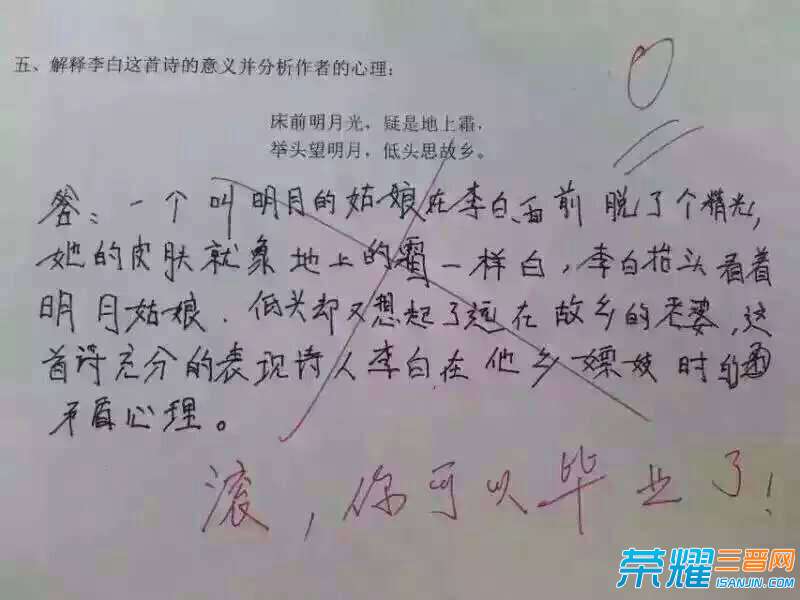 五、解释李白这首诗的意义并分析作者的心理：
床前明月光，疑是地上霜，
举头望明月，低头思故乡。
答：一个叫明月的姑娘在李白面前脱了个精光，
她的皮肤就象地上的霜一样白，李白抬头看着
明月姑娘．低头却又想起了远在故乡的老婆，这
首诗充分的表现诗人李白在他乡嫖妓时的
矛盾心理。
0
滚，你可以毕业了！
荣耀三晋网
ISANJIN.COM